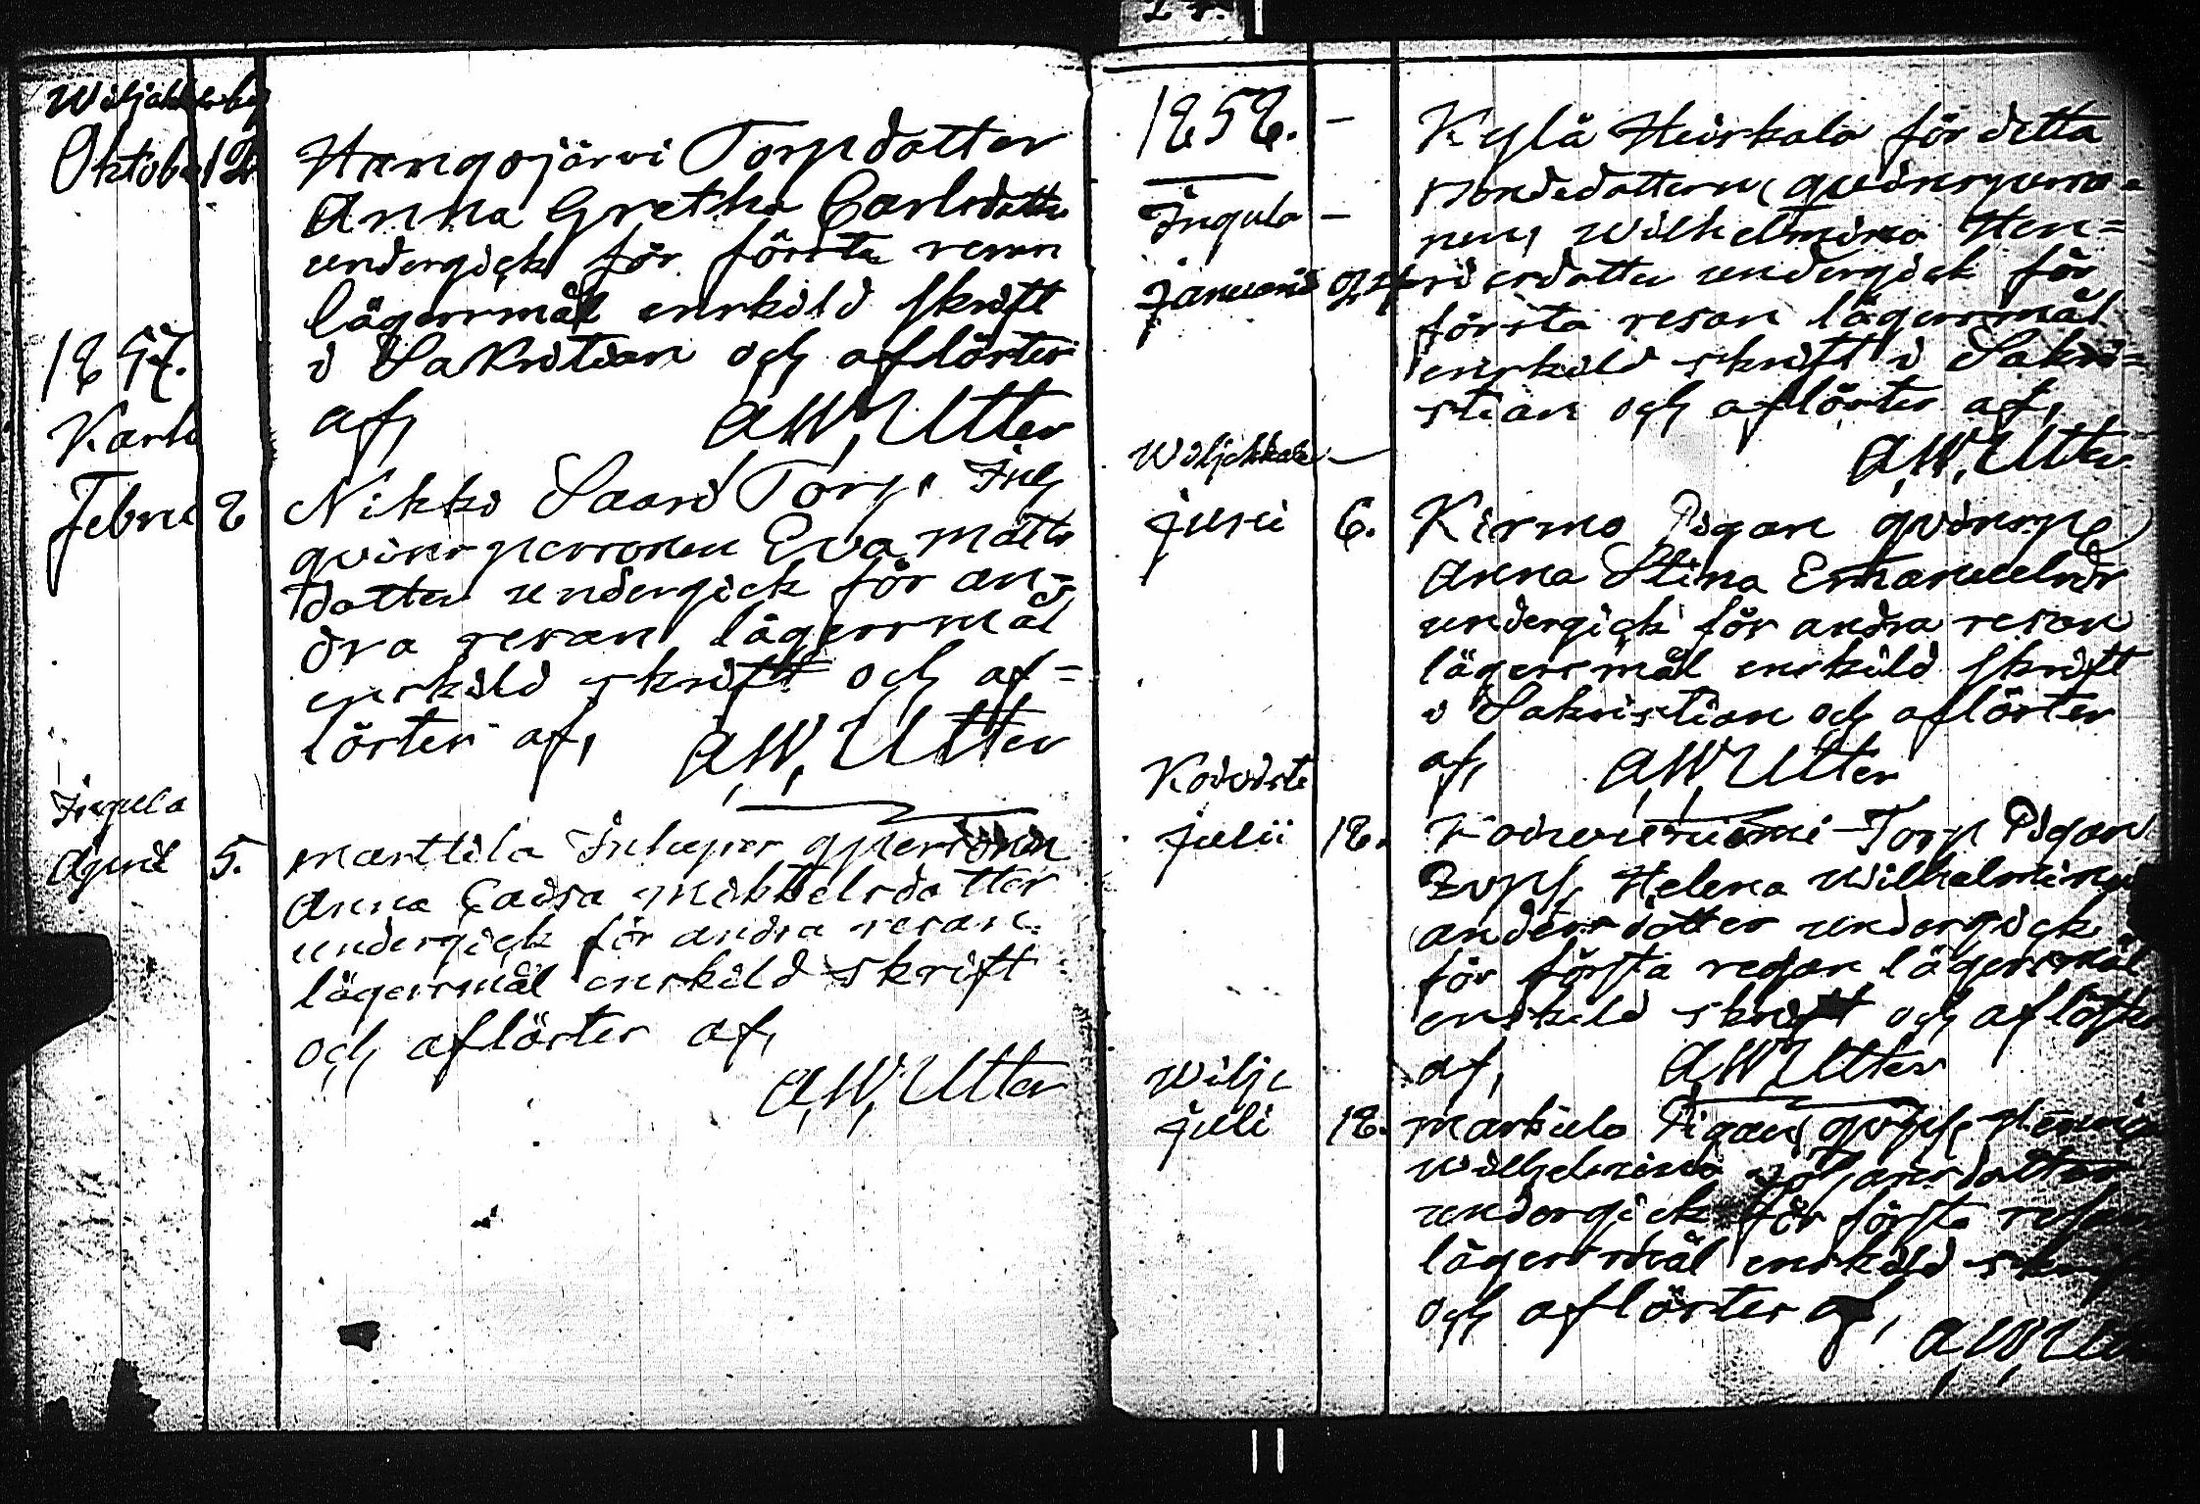 Wiljakkala by
Oktober 12.
Hangojärvi Torpdotter
Anna Gretha Carlsdotter
undergick för första resan
lägersmål enskild skrift
i Sakristian och aflöstes
af, A,W, Utter
1857.
Karhe
Februa 8
Nikko Saari Torp. Inh
qvinspersonen Eva Matts
dotter undergick för an-
dra resan lägersmål
enskild skrift och af=
löstes af, A,W, Utter
Ingula
April 5.
Marttila Inhyses qpersonen
Anna Caisa Mikkelsdotter
undergick för andra resan
lägersmål enskild skrift
och aflöstes af,
A,W, Utter
1858. -
Ingula -
Januarii 24
Kylä Heiskala för detta
bondedottern, qvinsperso=
nen, Wilhelmina Hen=
ricsdotter undergick för
första resan lägersmål
enskild skrift i Sakri=
stian och aflöstes af,
A,W, Utter
Wiljakkala -
Juni 6.
Kirmo Pigan qvinsp
Anna Stina Emanuelsdr
undergick för andra resan
lägersmål enskild skrift
i Sakristian och aflöstes
af, A,W, Utter
Koivisto
Julii 18.
Torp Pigan
Helena Wilhelmina
Andersdotter undergick
för första resan lägersmål
enskild skrift och aflöstes
af, A,W, Utter
Wilja
Juli 18.
Markula Pigan
Wilhelmina Johansdotter
undergick för första resan
lägersmål enskild skrift
och aflöstes af,
A,W, Utter